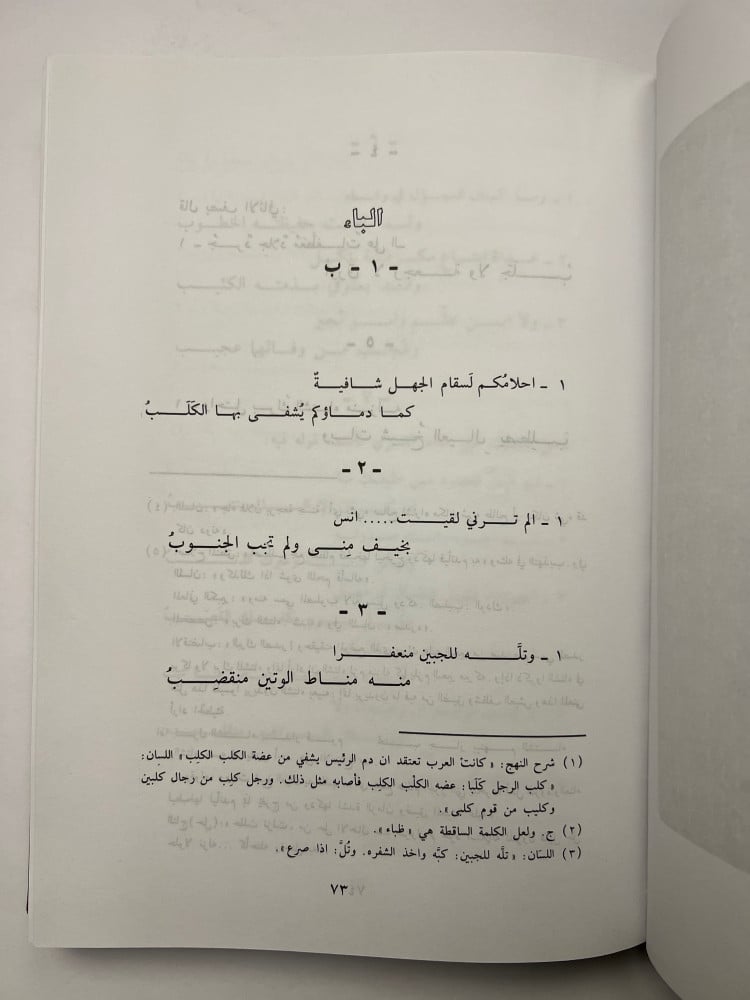 الباء
- ١ - ب
١ - احلامُكم لَسقام الجهل شافيةٌ
كما دماؤكم يُشفى بها الكَلَبُ
- ٢ -
١ - الم ترني لقيت..... انس
بخيف مِنى ولم تجب الجنوبُ
- ٣ -
١ - وتلَّه للجبين منعفرا
منه مناط الوتين منقضِبُ
(١) شرح النهج: «كانت العرب تعتقد ان دم الرئيس يشفي من عضة الكلب الكلِب» اللسان:
«كلب الرجل كَلَبا: عضه الكلْب الكلِب فأصابه مثل ذلك. ورجل كلِب من رجال كلبين
وكليب من قوم كلبى».
(٢) ج. ولعل الكلمة الساقطة هي «ظباء».
(٣) اللسان: «تله للجبين: كبَّه واخذ الشفره. وتُلَّ: اذا صرع».
٧٣